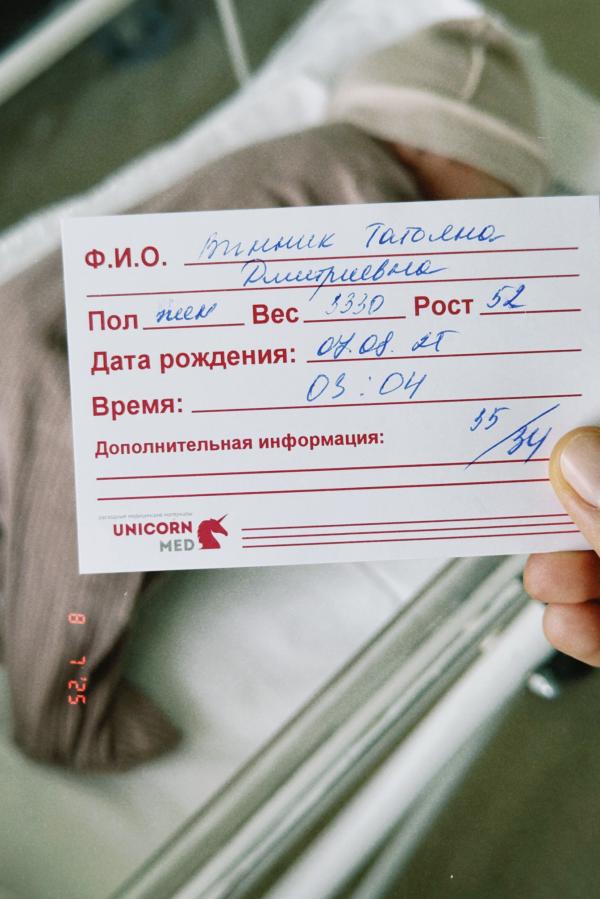 Ф.И.О. Винник Татьяна
Дмитриевна
Пол жен Вес 3330 Рост 52
Дата рождения: 07.08.25
Время: 03:04
Дополнительная информация: 35/34
расходные медицинские материалы
UNICORN
MED
8 7 '25